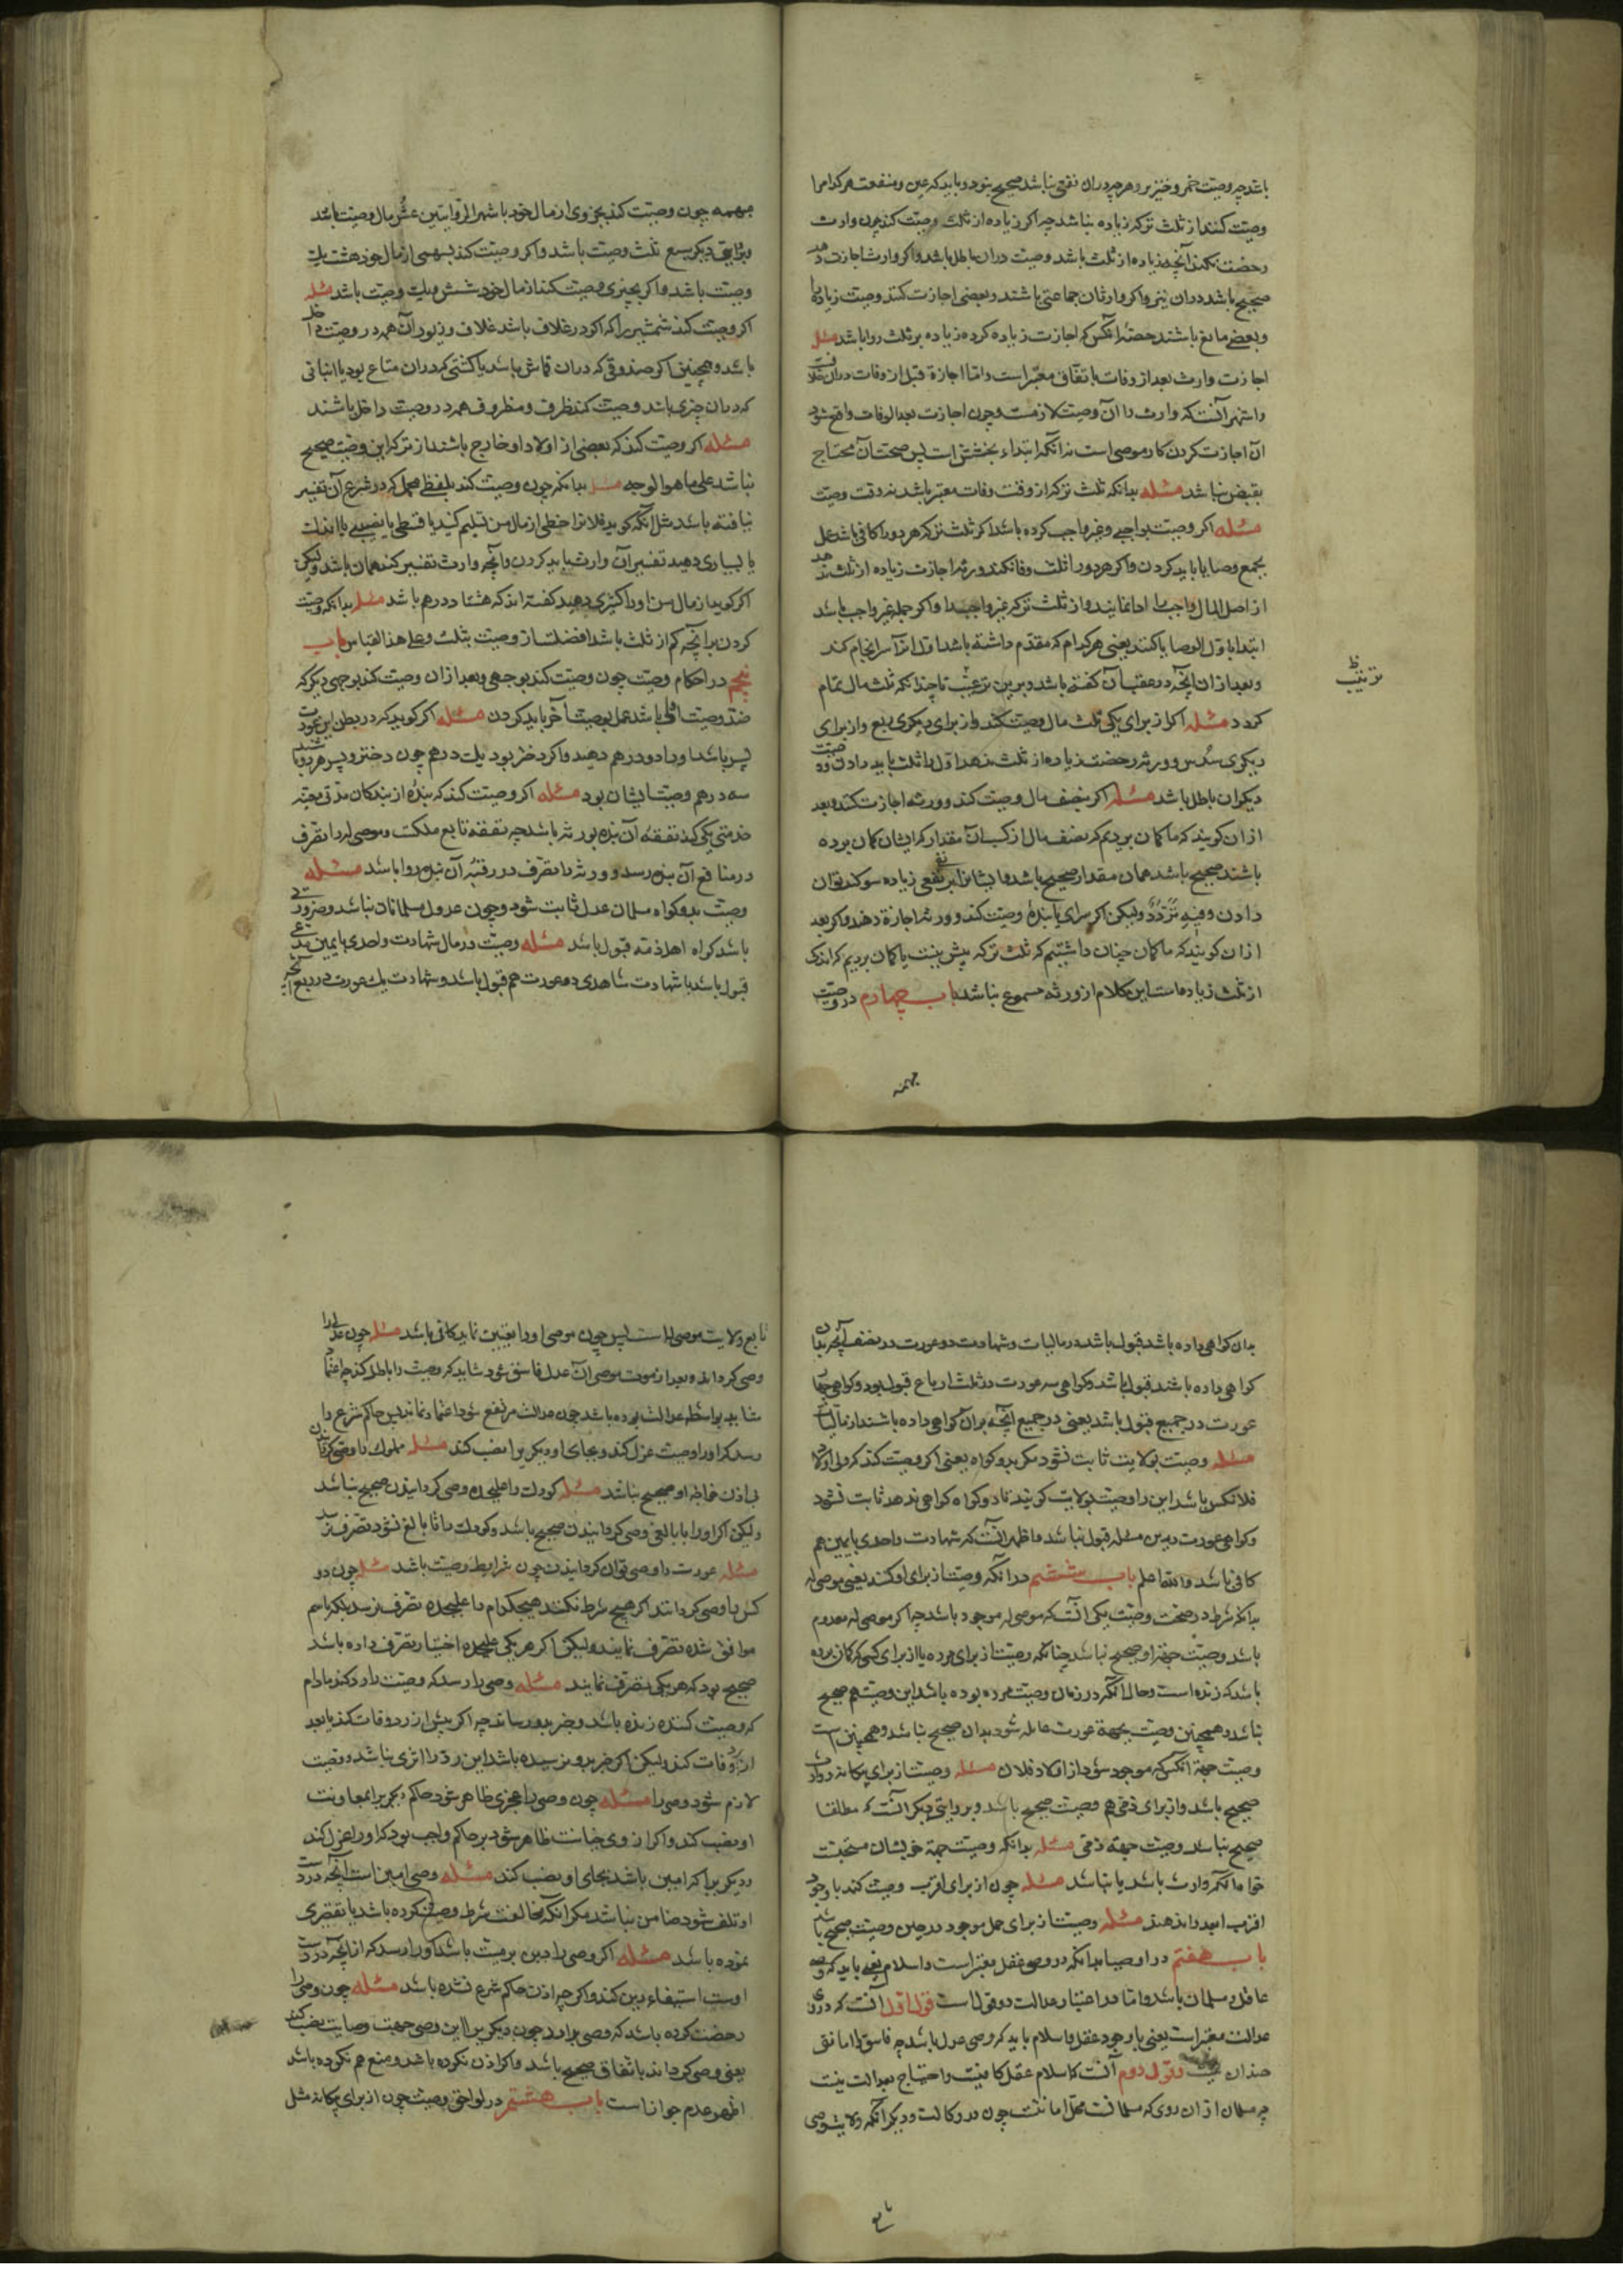 باشد چه وصیت خمر و خنزیر و هر چه دران نفعی نباشد صحیح نبود و باید که عین و منفعت هر کدام را
وصیت کنند از ثلث ترکه زیاده نباشد چه اکر زیاده از ثلث وصیت کند چون وارث
رخصت نکند آنچه زیاده از ثلث باشد وصیت دران باطل باشد و اکر وارث اجازت دهد
صحیح باشد دران نیز و اکر وارثان جماعتی باشند و بعضی اجازت کنند وصیت زیاده را
و بعضی مانع باشند حصهٔ انکس که اجازت زیاده کرده زیاده بر ثلث روا باشد مسئله
اجازت وارث بعد از وفات باتفاق معتبر است و اما اجازة قبل از وفات دران خلافست
و اشهر آنست که وارث را آن وصیت لازمست و چون اجازت بعد الوفات واقع شود
آن اجازت کردن کار موصی است نه آنکه ابتداء بخشش است پس صحت آن محتاج
بقبض نباشد مسئله بدانکه ثلث ترکه از وقت وفات معتبر باشد نه وقت وصیت
مسئله اکر وصیت بواجبی و غیر واجب کرده باشد اکر ثلث ترکه هر دو را کافی باشد عمل
بجمع وصایا باید کردن و اکر هر دو را ثلث وفا نکند و ورثه اجازت زیاده از ثلث ندهد
از اصل المال واجب را ادا نمایند و از ثلث ترکه غیر واجب را و اکر جمله غیر واجب باشد
ابتدا باول الوصایا کنند یعنی هر کدام که مقدم داشته باشد اول انرا سرانجام کند
و بعد ازان آنچه در عقب آن کفته باشد و برین ترغیب تا چندانکه ثلث مال تمام
کردد مسئله اکر از برای یکی ثلث مال وصیت کند و از برای دیکری ربع و از برای
دیکری سدس و ورثه رخصت زیاده از ثلث ندهد اول را ثلث باید دادن و وصیت
دیکران باطل باشد مسئله اکر بنصف مال وصیت کند و ورثه اجازت کنند و بعد
ازان کویند که ما کمان بردیم که نصف مال اندکست آن مقدار که ایشان کمان برده
باشند صحیح باشد همان مقدار صحیح باشد و ایشانرا بر نفی زیاده سوکند توان
دادن و فیه تردد ولیکن اکر سرای یا بندهٔ وصیت کند و ورثه اجازة دهند و اکر بعد
ازان کویند که ما کمان چنان داشتیم که ثلث ترکه بیش نیست یا کمان بردیم که اندکی
از ثلث زیاده است این کلام از ورثه مسموع نباشد باب چهارم در وصیت
مبهمه
ترتیب ظ
مبهمه چون وصیت کند بجزوی از مال خود باشهر الروایتین عشر مال وصیت باشد
و بروایتی دیکر سبع ثلث وصیت باشد و اکر وصیت کند بسهمی از مال خود هشت یک
وصیت باشد و اکر بچیزی وصیت کند از مال خود شش یک وصیت باشد مسئله
اکر وصیت کند شمشیر را که اکر در غلاف باشد غلاف و زیور آن همه در وصیت داخل
باشد و همچنین اکر صندوقی که دران قماش باشد یا کشتی که دران متاع بود یا انبانی
که دران چیزی باشد وصیت کند ظرف و مظروف همه در وصیت داخل باشند
مسئله اکر وصیت کند که بعضی از اولاد او خارج باشند از ترکه این وصیت صحیح
نباشد علی ما هو الوجه مسئله بدانکه چون وصیت کند بلفظی مجمل که در شرع آن تفسیر
نیافته باشد مثل آنکه کوید فلانرا حظی از مال من تسلیم کنید یا قسطی یا نصیبی یا اندک
یا بسیاری دهید تفسیر آن وارث باید کردن و آنچه وارث تفسیر کند همان باشد ولیکن
اکر کوید از مال من او را کثیری دهید کفته اند که هشتاد درهم باشد مسئله بدانکه وصیت
کردن بر آنچه کم از ثلث باشد افضلست از وصیت بثلث و علی هذا القیاس باب
پنجم در احکام وصیت چون وصیت کند بوجهی و بعد ازان وصیت کند بوجهی دیکر که
ضد وصیت اول باشد عمل بوصیت آخر باید کردن مسئله اکر کوید که در بطن این عورت
پسر باشد او را دو درهم دهید و اکر دختر بود یک درهم چون دختر و پسر هر دو باشند
سه درهم وصیت ایشان بود مسئله اکر وصیت کند که بندهٔ از بندکان مدتی معینه
خدمتی یکی کند نفقهٔ آن بنده بورثه باشد چه نفقه تابع ملکست و موصی له را تصرف
در منافع آن بنده رسد و ورثه را تصرف در رقبهٔ آن بنده روا باشد مسئله
وصیت بدو کواه مسلمان عدل ثابت شود و چون عدول مسلمانان نباشد و ضرورتی
باشد کواه اهل ذمه قبول باشد مسئله وصیت در مال شهادت واحدی با یمین مدعی
قبول باشد با شهادت شاهدی دو عورت هم قبول باشد و شهادت یک عورت در ربع آنچه
بدان کواهی داده باشد قبول باشد در مالیات و شهادت دو عورت در نصف آنچه بدان
کواهی داده باشند قبول باشد و کواهی سه عورت در ثلث ارباع قبول بود و کواهی چهار
عورت در جمیع قبول باشد یعنی در جمیع آنچه بران کواهی داده باشند از مالیات
مسئله وصیت بولایت ثابت نشود مکر بدو کواه یعنی اکر وصیت کند که ولی اولاد
فلانکس باشد این را وصیت بولایت کویند تا دو کواه کواهی ندهد ثابت نشود
و کواهی عورت درین مسئله قبول نباشد و اظهر آنست که شهادت واحدی با یمین هم
کافی باشد والله اعلم باب ششم در آنکه وصیت از برای او کنند یعنی موصی له
بدانکه شرط در صحت وصیت یکی آنست که موصی له موجود باشد چه اکر موصی له معدوم
باشد وصیت جهة او صحیح نباشد چنانکه وصیت از برای مرده یا از برای کسی که کمان برده
باشد که زنده است و حال آنکه در زمان وصیت مرده بوده باشد این وصیت هم صحیح
نباشد و همچنین وصیت بجهة عورت حامله شود بدان صحیح نباشد و همچنین است
وصیت جهة آنکس که موجود شود از اولاد فلان مسئله وصیت از برای بیکانه و وارث
صحیح باشد و از برای ذمی هم وصیت صحیح باشد و بروایتی دیکر آنست که مطلقا
صحیح نباشد وصیت جهة ذمی مسئله بدانکه وصیت جهة خویشان مستحبست
خواه آنکه وارث باشد یا نباشد مسئله چون از برای اقرب وصیت کند با وجود
اقرب ابعد را ندهند مسئله وصیت از برای حمل موجود در حین وصیت صحیح باشد
باب هفتم در اوصیا بدانکه در وصی عقل معتبر است و اسلام یعنی باید که وصی
عاقل و مسلمان باشد و اما در اعتبار عدالت دو قولست قول اول آنست که در وی
عدالت معتبر است یعنی با وجود عقل و اسلام باید که وصی عدل باشد چه فاسق را امانتی
چندان نیست و قول دوم آنست که اسلام عقل کافیست و احتیاج بعدالت نیست
چه مسلمان ازان روی که مسلمانست محل امانتست چون در وکالت و دیکر آنکه ولایت وصی
تابع
تابع ولایت موصی است پس چون موصی او را تعیین نماید کافی باشد مسئله چون عدلی را
وصی کرداند و بعد از موت موصی آن عدل فاسق شود شاید که وصیت را باطل کند چه اعتماد
شاید بواسطه عدالت بوده باشد چون عدالت مرتفع شود اعتماد نماند پس حاکم شرع را
رسد که او را از وصیت عزل کند و بجای او دیکری را نصب کند مسئله مملوک را وصی کردانیدن
بی اذن خواجه او صحیح نباشد مسئله کودک را علیحده وصی کردانیدن صحیح نباشد
ولیکن اکر او را با بالغی وصی کردانیدن صحیح باشد و کودک را تا بالغ نشود تصرف نرسد
مسئله عورت را وصی توان کردانیدن چون شرایط وصیت باشد مسئله چون دو
کس را وصی کردانند اکر هیچ شرط نکند هیچکدام را علیحده تصرف نرسد بلکه با هم
موافق شده تصرف نمایند ولیکن اکر هر یکی علیحده اختیار تصرف داده باشد
صحیح بود که هر یکی تصرف نمایند مسئله وصی را رسد که وصیت را رد کند مادام
که وصیت کننده زنده باشد و خبر بدو رساند چه اکر پیش از رد وفات کند یا بعد
از رد وفات کند ولیکن اکر خبر بدو نرسیده باشد این رد را اثری نباشد و وصیت
لازم شود وصی را مسئله چون وصی را عجزی ظاهر شود حاکم دیکری را بمعاونت
او نصب کند و اکر از وی خیانت ظاهر شود بر حاکم واجب بود که او را عزل کند
و دیکریرا که امین باشد بجای او نصب کند مسئله وصی امین است آنچه در دست
او تلف شود ضامن نباشد مکر آنکه مخالفت شرط وصیت کرده باشد یا تقصیری
نموده باشد مسئله اکر وصی را دین بر میت باشد او را رسد که از آنچه در دست
اوست استیفاء دین کند و اکر چه اذن حاکم شرع نشده باشد مسئله چون وصی را
رخصت کرده باشد که وصی را رسد چون دیکری را این وصی جهت وصایت نصب کند
یعنی وصی کرداند باتفاق صحیح باشد و اکر اذن نکرده باشد و منع هم نکرده باشد
اظهر عدم جواز است باب هشتم در لواحق وصیت چون از برای بیکانه مثل